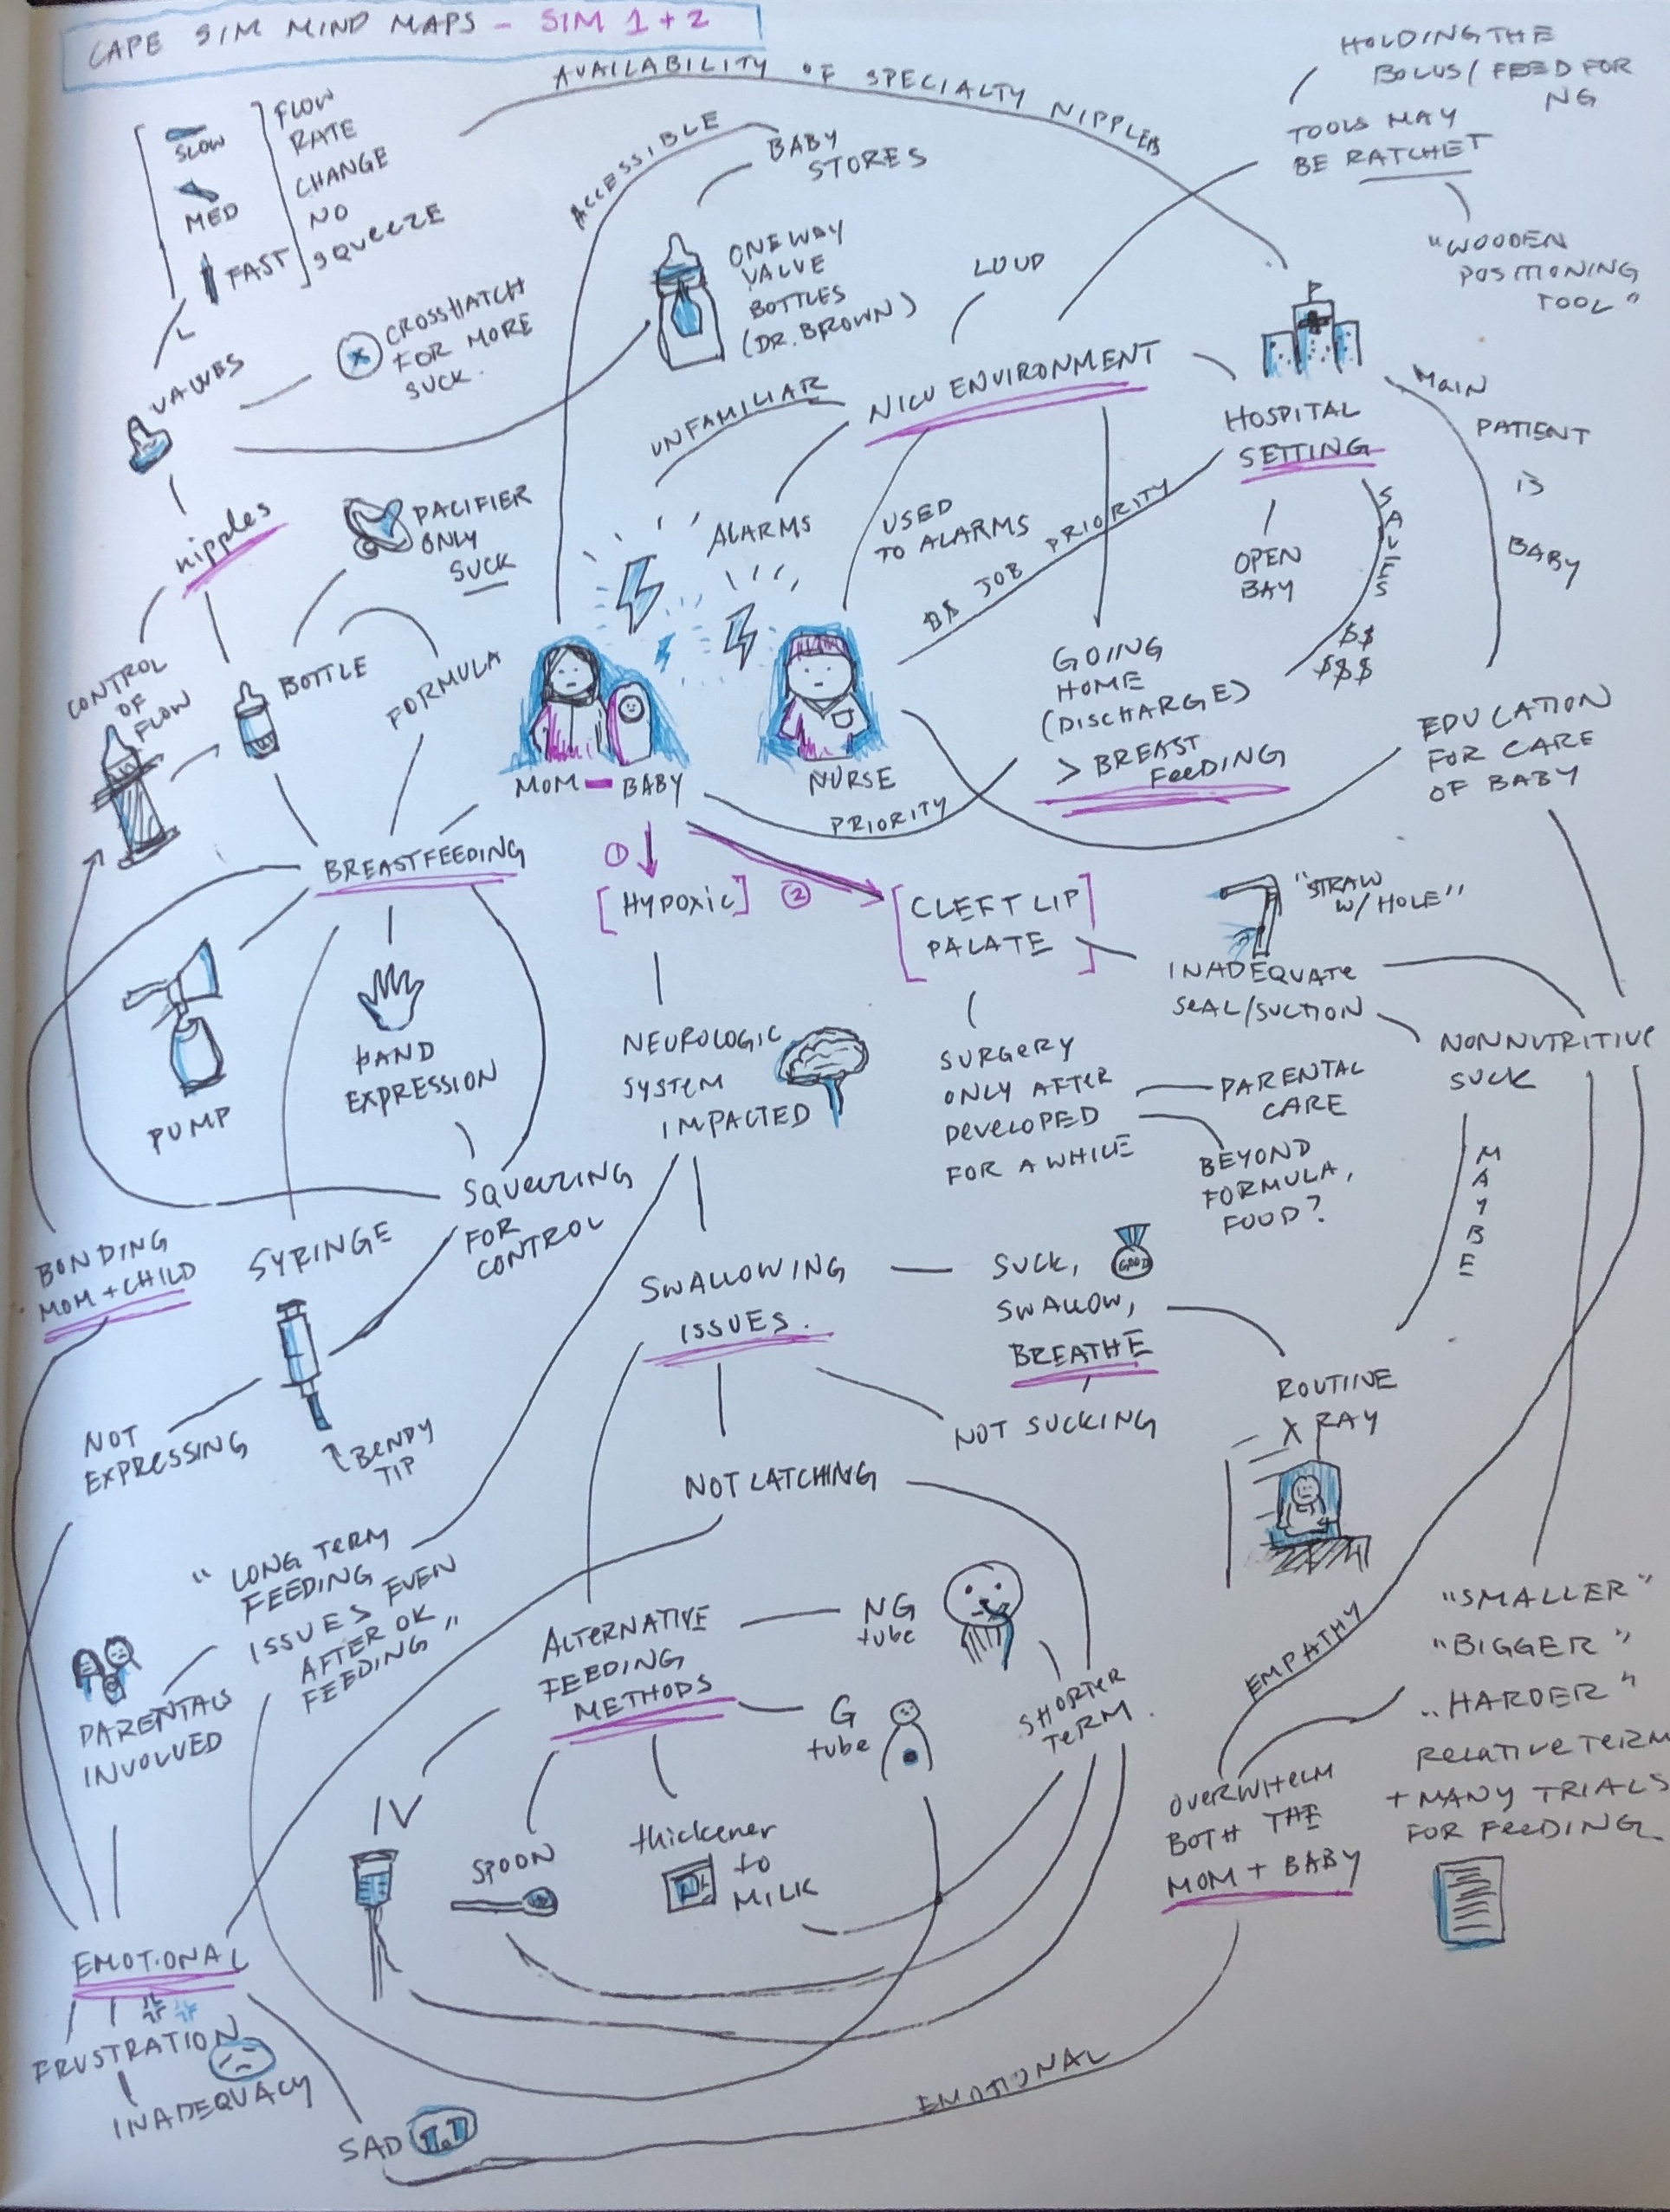 CAPE SIM MIND MAPS - SIM 1 + 2
AVAILABILITY OF SPECIALTY NIPPLES
HOLDING THE
BOLUS / FEED FOR
NG
TOOLS MAY
BE RATCHET
"WOODEN
POSITIONING
TOOL"
SLOW
MED
FAST
FLOW
RATE
CHANGE
NO
SQUEEZE
ACCESSIBLE
BABY
STORES
ONE WAY
VALVE
BOTTLES
(DR. BROWN)
LOUD
CROSSHATCH
FOR MORE
SUCK.
VALVES
UNFAMILIAR
NICU ENVIRONMENT
HOSPITAL
SETTING
MAIN
PATIENT
IS
BABY
nipples
PACIFIER
ONLY
SUCK
ALARMS
USED
TO ALARMS
JOB PRIORITY
OPEN
BAY
SAVES
$$
$$$
CONTROL
OF
FLOW
BOTTLE
FORMULA
GOING
HOME
(DISCHARGE)
> BREAST
FEEDING
EDUCATION
FOR CARE
OF BABY
MOM - BABY
NURSE
PRIORITY
BREASTFEEDING
①
[HYPOXIC]
②
[CLEFT LIP
PALATE]
"STRAW
W/ HOLE"
INADEQUATE
SEAL/SUCTION
NONNUTRITIVE
SUCK
PUMP
HAND
EXPRESSION
NEUROLOGIC
SYSTEM
IMPACTED
SURGERY
ONLY AFTER
DEVELOPED
FOR A WHILE
PARENTAL
CARE
BEYOND
FORMULA,
FOOD?
MAYBE
SQUEEZING
FOR
CONTROL
BONDING
MOM + CHILD
SYRINGE
SWALLOWING
ISSUES.
SUCK,
GOOD
SWALLOW,
BREATHE
ROUTINE
X RAY
NOT
EXPRESSING
BENDY
TIP
NOT SUCKING
NOT LATCHING
"LONG TERM
FEEDING
ISSUES EVEN
AFTER OK
FEEDING"
PARENTALS
INVOLVED
ALTERNATIVE
FEEDING
METHODS
NG
tube
G
tube
SHORTER
TERM.
EMPATHY
"SMALLER"
"BIGGER"
"HARDER"
RELATIVE TERM
+ MANY TRIALS
FOR FEEDING
OVERWHELM
BOTH THE
MOM + BABY
IV
SPOON
thickener
to
MILK
EMOTIONAL
FRUSTRATION
INADEQUACY
SAD
EMOTIONAL